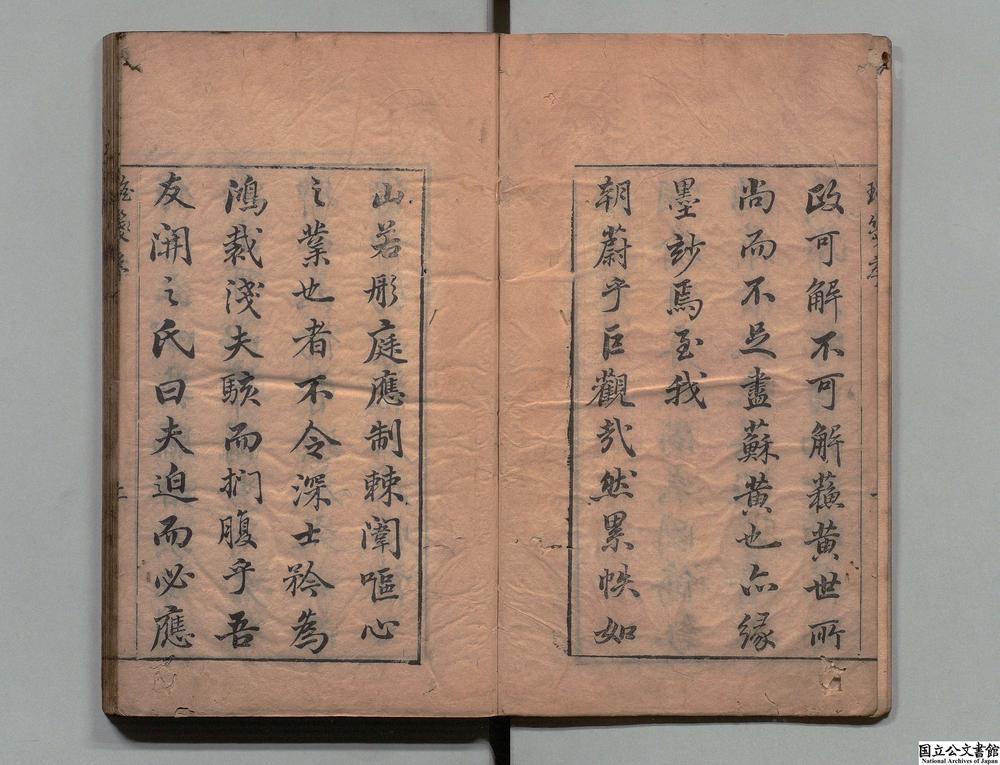 政可解不可解蘇黄世所
尚而不足盡蘇黄也亦縁
墨妙焉至我
朝蔚乎巨觀哉然累帙如
山若彤庭應制棘闈嘔心
之業也者不令深士矜為
鴻裁淺夫駭而捫腹乎吾
友開之氏曰夫迫而必應
国立公文書館
National Archives of Japan